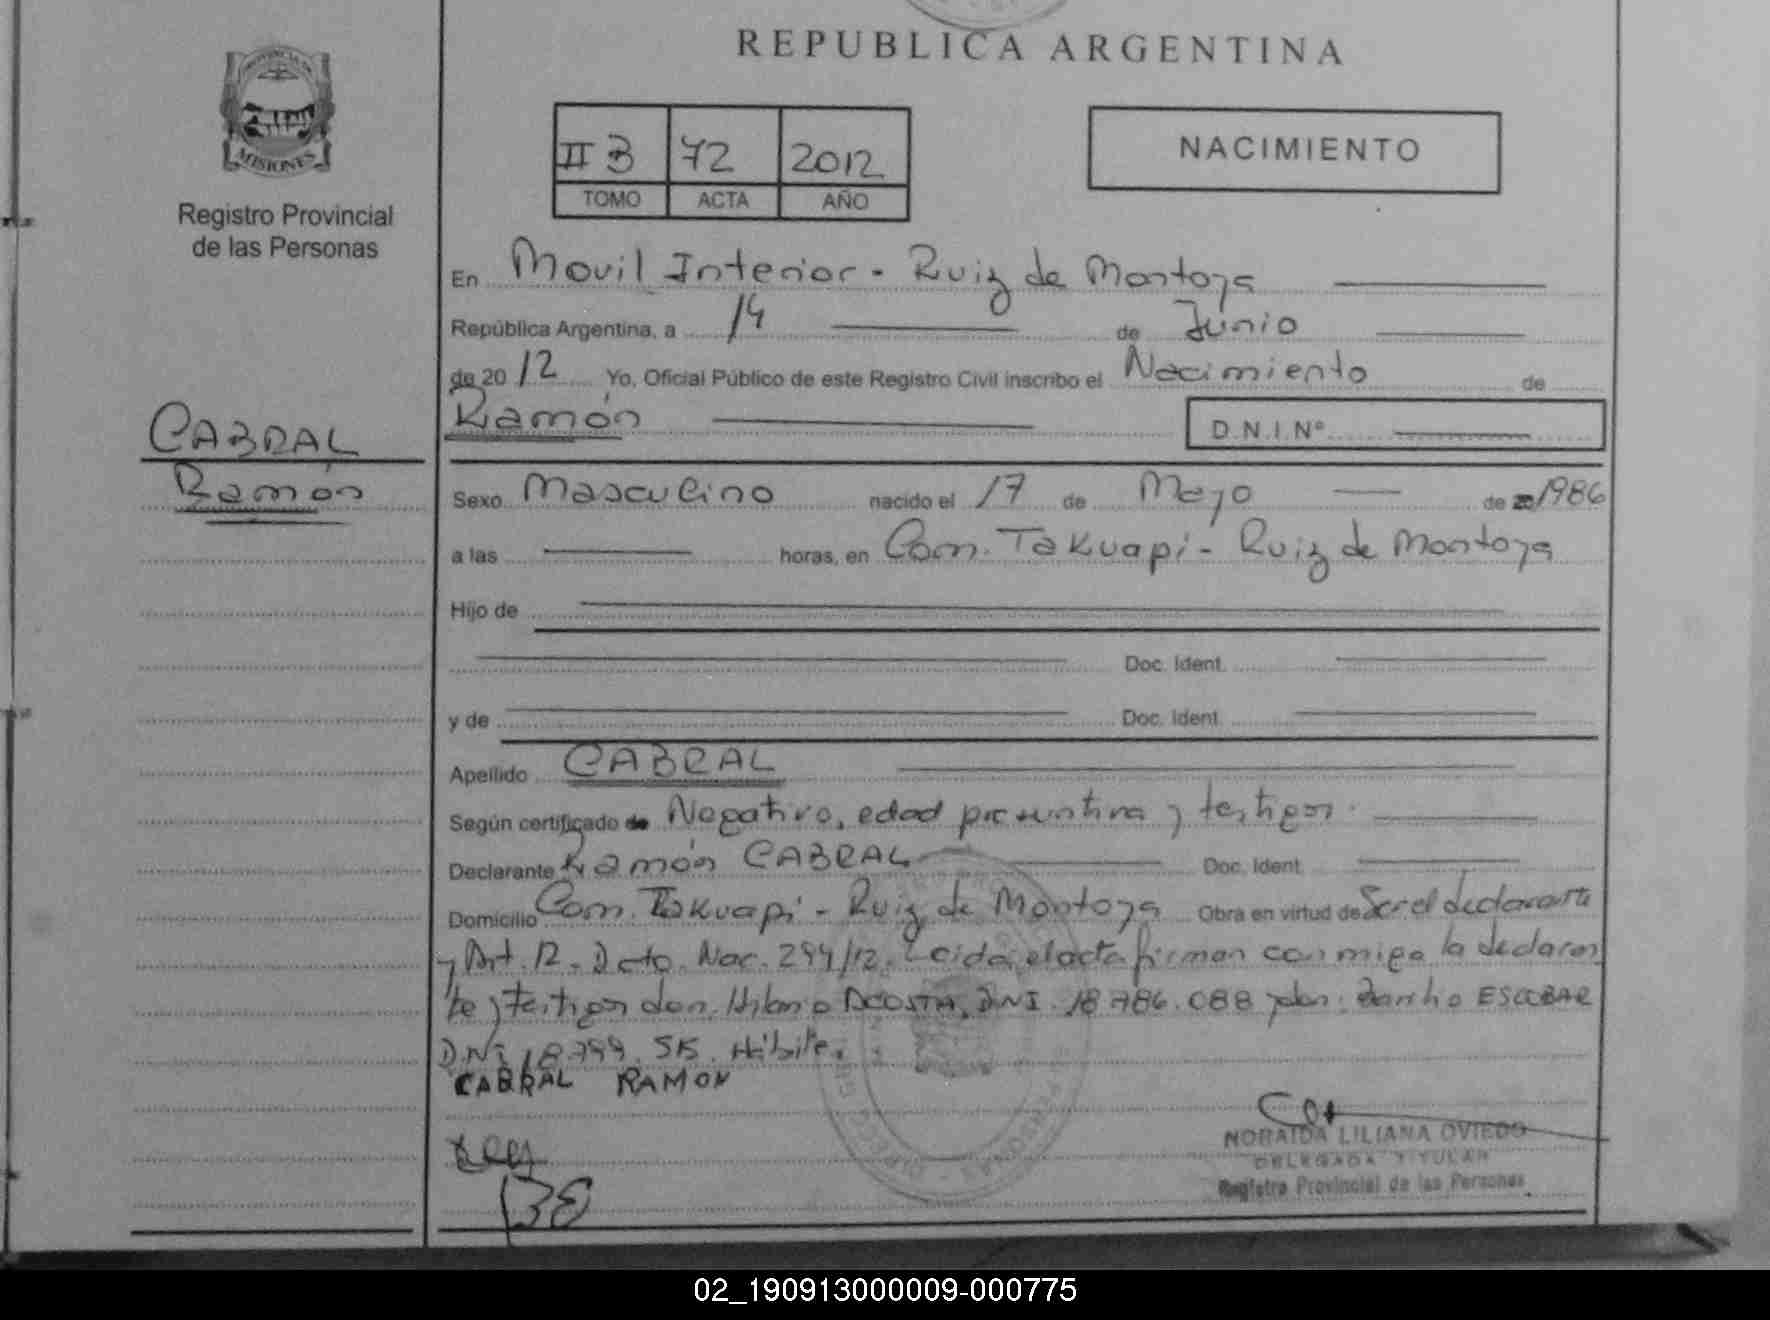 REPUBLICA ARGENTINA
MISIONES
Registro Provincial
de las Personas
II B 72 2012
TOMO ACTA AÑO
NACIMIENTO
En Movil Interior - Ruiz de Montoya
República Argentina, a 14 de Junio
de 2012 Yo, Oficial Público de este Registro Civil inscribo el Nacimiento de
Ramón D.N.I.Nº
CABRAL
Ramón
Sexo Masculino nacido el 17 de Mayo de 20 1986
a las horas, en Com. Takuapi - Ruiz de Montoya
Hijo de
Doc. Ident.
y de Doc. Ident.
Apellido CABRAL
Según certificado de Negativo, edad presuntiva y testigos.
Declarante Ramón CABRAL Doc. Ident.
Domicilio Com. Takuapi - Ruiz de Montoya Obra en virtud de Ser el declarante
y Art. 12. Dcto. Nac. 294/12. Leida el acta firman conmigo la declaran
te y testigos don. Hilario ACOSTA, DNI. 18.786.088 y don: ESCOBAR
DNI 18.799.515.
CABRAL RAMON
NORAIDA LILIANA OVIEDO
DELEGADA TITULAR
Registro Provincial de las Personas
02_190913000009-000775